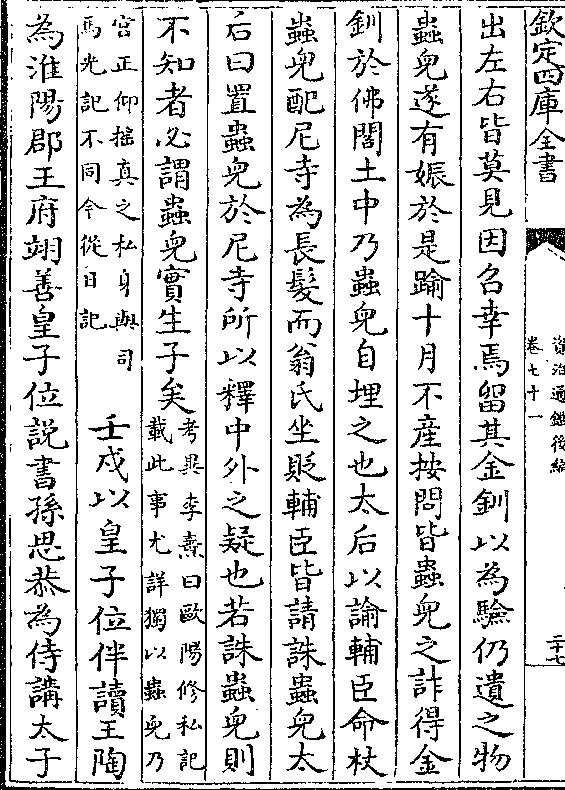 欽定四庫全書
資治通鑑後編
卷七十一
二十七
出左右皆莫見因召幸焉留其金釧以為驗仍遺之物
蟲兒遂有娠於是踰十月不產按問皆蟲兒之詐得金
釧於佛閣土中乃蟲兒自埋之也太后以諭輔臣命杖
蟲兒配尼寺為長髮而翁氏坐貶輔臣皆請誅蟲兒太
后曰置蟲兒於尼寺所以釋中外之疑也若誅蟲兒則
不知者必謂蟲兒實生子矣
考異李燾曰歐陽修私記
載此事尤詳獨以蟲兒乃
宮正仰揺真之私身與司
馬光記不同今從日記
壬戌以皇子位伴讀王陶
為淮陽郡王府翊善皇子位說書孫思恭為侍講太子